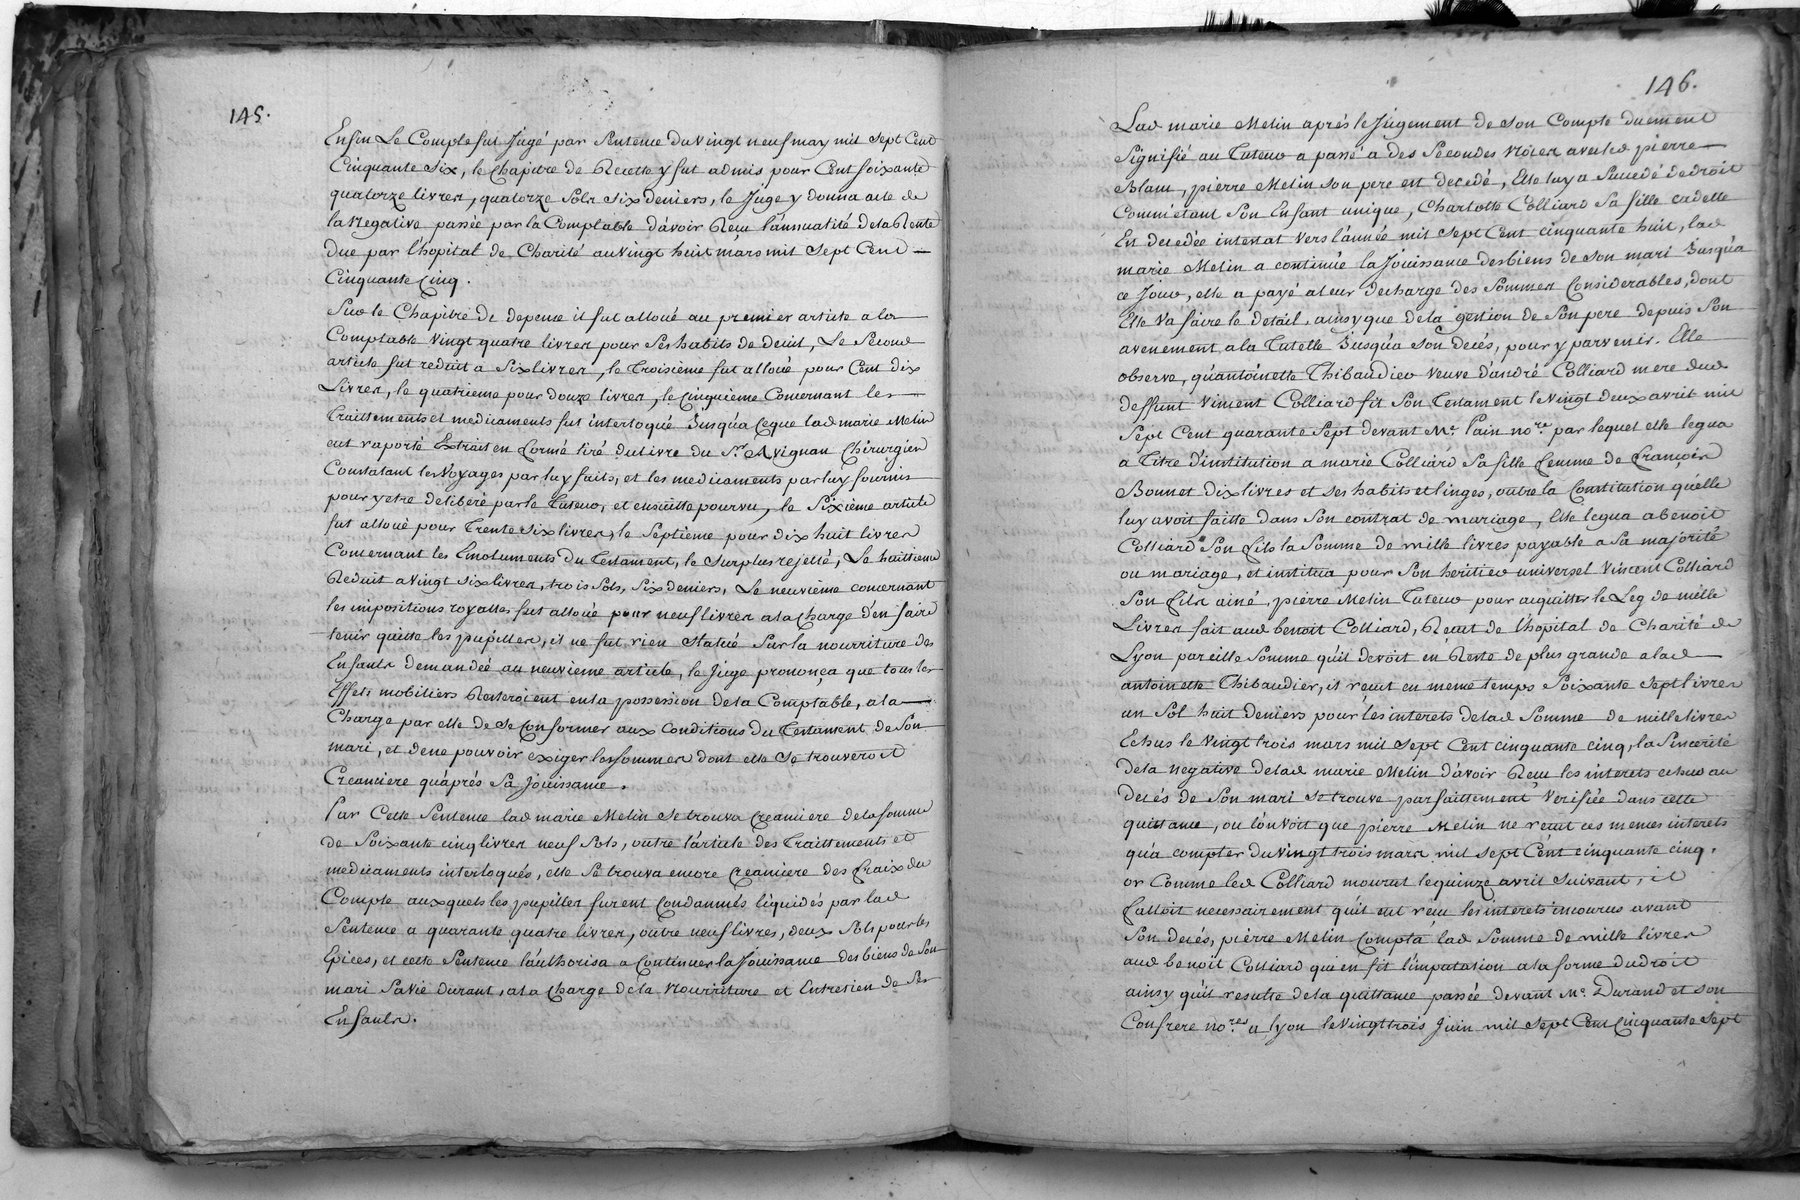 145.
Enfin Le Compte fut Jugé par Sentence du vingt neuf may mil Sept Cent
Cinquante Six, le Chapitre de Recette y fut admis pour Cent soixante
quatorze livres, quatorze Sols Six deniers, le Juge y donna acte de
la Negative passée par la Comptable d'avoir Reçu l'annualité de la Rente
due par l'hopital de Charité au vingt huit mars mil Sept Cent
Cinquante Cinq.
Sur le Chapitre de depense il fut alloué au premier article a la
Comptable vingt quatre livres pour Ses habits de deuil, Le Second
article fut reduit a Six livres, le Troisieme fut alloué pour Cent dix
Livres, le quatrieme pour douze livres, le Cinquieme Concernant les
Traittements et medicaments fut interloqué Jusqu'a Ceque lad marie Melin
eut raporté Extrait en forme tiré du livre du Sr. Avignan Chirurgien
Constatant les Voyages par luy faits, et les medicaments par luy fournis
pour y etre deliberé par le Tuteur, et ensuitte pourvu, le Sixieme article
fut alloué pour Trente Six livres, le Septieme pour dix huit livres
Concernant les Emoluments du Testament, le Surplus rejetté, Le huitieme
Reduit a vingt Six livres, trois Sols, Six deniers, Le neuvieme concernant
les impositions royalles fut alloué pour neuf livres a la Charge d'en faire
tenir quitte les pupilles, il ne fut rien Statué Sur la nourriture des
Enfants demandée au neuvieme article, le Juge prononça que tous les
Effets mobiliers Resteroient en la possession de la Comptable, a la
Charge par elle de Se Conformer aux Conditions du Testament de Son
mari, et de ne pouvoir exiger les sommes dont elle Se trouveroit
Creanciere qu'aprés Sa Jouissance.
Par Cette Sentence lad marie Melin Se trouva Creanciere de la somme
de Soixante cinq livres neuf Sols, outre l'article des Traittements et
medicaments interloqués, elle Se trouva encore Creanciere des fraix du
Compte auxquels les pupilles furent Condamnés liquidés par lad
Sentence a quarante quatre livres, outre neuf livres, deux Sols pour les
Epices, et cette Sentence l'authorisa a Continuer la Jouissance des biens de Son
mari Sa vie durant, a la Charge de la Nourriture et Entretien de Ses
Enfants.
146.
Lad marie Melin aprés le Jugement de Son Compte duement
Signifié au Tuteur a passé a des Secondes Nôces avec led pierre
Blanc, pierre Melin Son pere est decedé, Elle luy a Succedé de droit
Comm'etant Son Enfant unique, Charlotte Colliard Sa fille cadette
Est decedée intestat vers l'année mil Sept Cent cinquante huit, lad
marie Melin a continué la Jouissance des biens de Son mari Jusqu'a
ce Jour, elle a payé a leur decharge des Sommes Considerables, dont
Elle va faire le detail, ainsy que de la gestion de Son pere depuis Son
avenement a la Tutelle Jusqu'a Son decés, pour y parvenir. Elle
observe, qu'antoinette Thibaudier veuve d'andré Colliard mere dud
deffunt Vincent Colliard fit Son Testament le vingt deux avril mil
Sept Cent quarante Sept devant Me. Pain nore. par lequel elle legua
a Titre d'institution a marie Colliard Sa fille femme de françois
Bonnet dix livres et Ses habits et linges, outre la Constitution qu'elle
luy avoit faitte dans Son contrat de mariage, Elle legua a benoit
Colliard Son fils la Somme de mille livres payable a Sa majorité
ou mariage, et institua pour Son heritier universel Vincent Colliard
Son fils ainé, pierre Melin Tuteur pour acquitter le Leg de mille
Livres fait aud benoit Colliard, Reçut de l'hopital de Charité de
Lyon pareille Somme qu'il devoit en Reste de plus grande a lad
antoinette Thibaudier, il reçut en meme temps Soixante Sept livres
un Sol huit deniers pour les interets de lad Somme de mille livres
Echus le vingt trois mars mil Sept Cent cinquante cinq, la Sincerité
de la negative de lad marie Melin d'avoir Reçu les interets echus au
decés de Son mari Se trouve parfaittement Verifiée dans cette
quittance, ou l'on Voit que pierre Melin ne reçut ces memes interets
qu'a compter du vingt trois mars mil Sept Cent cinquante cinq.
or Comme led Colliard mourut le quinze avril Suivant, il
falloit necessairement qu'il eut reçu les interets encourus avant
Son decés, pierre Melin Compta lad Somme de mille livres
aud benoit Colliard qui en fit l'imputation a la forme du droit
ainsy qu'il resulte de la quittance passée devant Me. Durand et Son
Confrere nores. a Lyon le vingt trois Juin mil Sept Cent Cinquante Sept